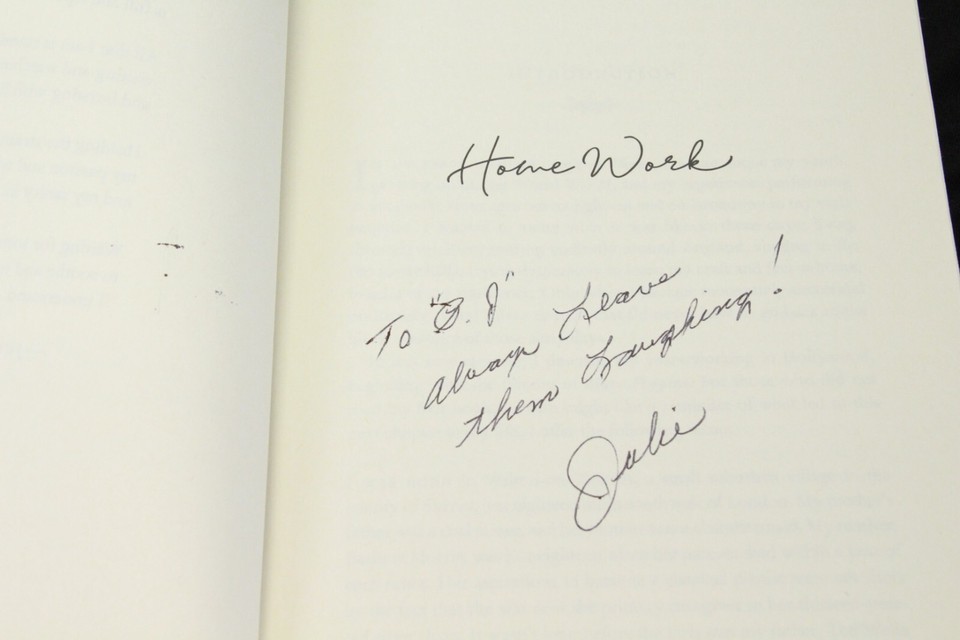 Home Work
To "B. J"
Always Leave
them Laughing!
Julie